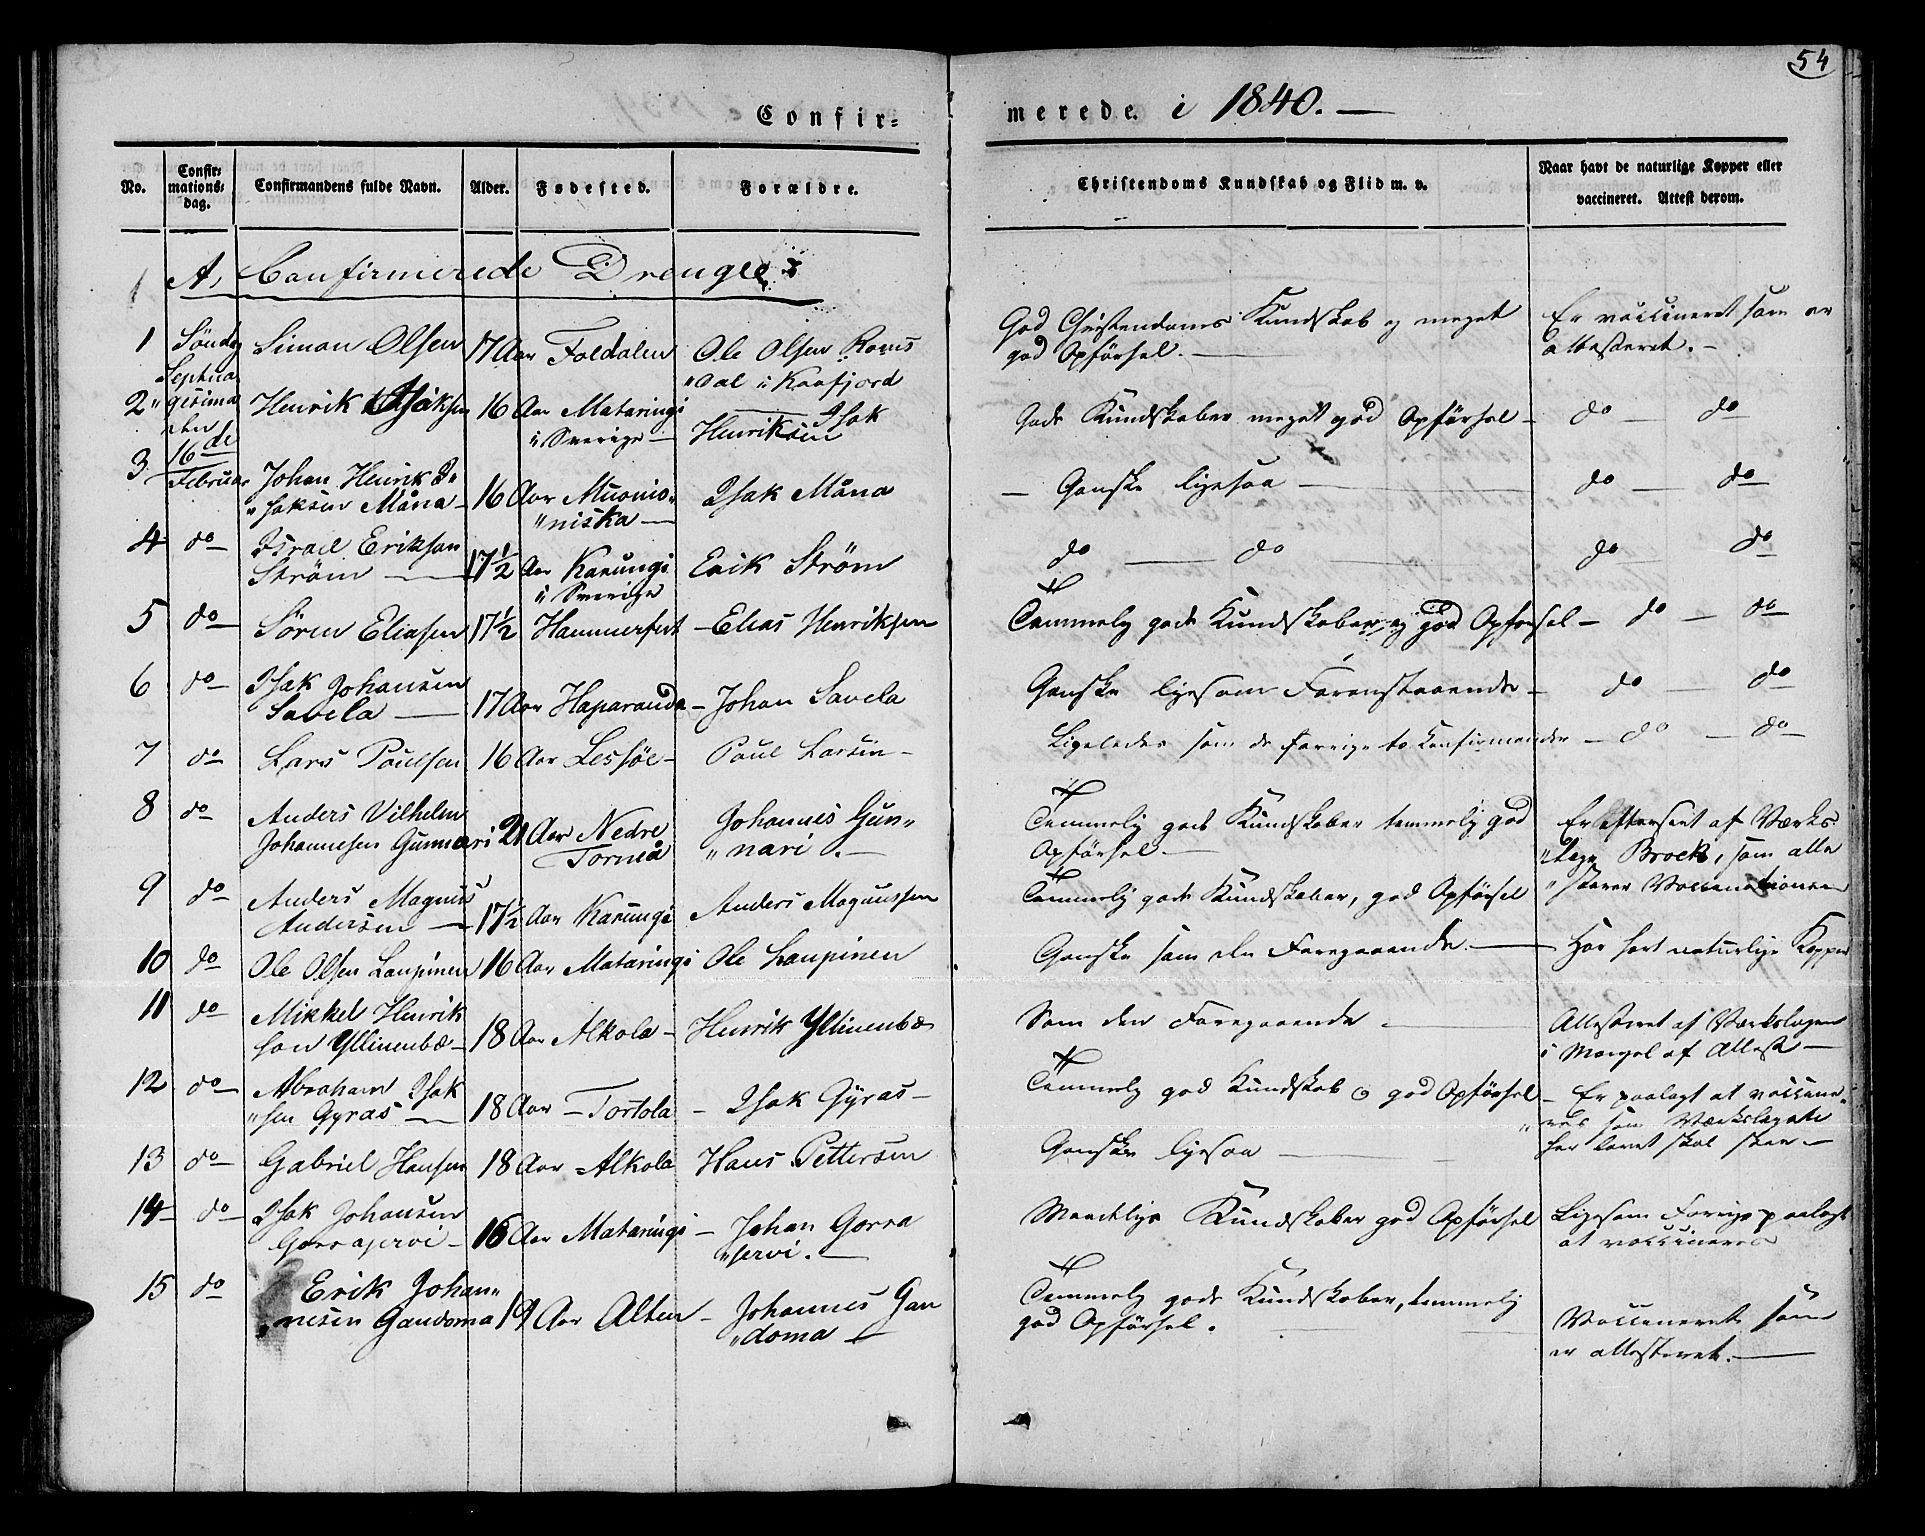 54
Confir- merede. i 1840. —
No. Confir-mations-dag. Confirmandens fulde Navn. Alder. Fødested. Forældre. Christendoms Kundskab og Flid m. v. Naar havt de naturlige Kopper eller vaccineret. Attest derom.
A, Confirmerede Drenge
1 Søndag Septuagesima den 16de Februar Simon Olsen 17 Aar Foldalen Ole Olsen Romsdal i Kaafjord God Christendoms Kundskab og meget god Opførsel. — Er vaccineret som er attesteret. —
2 " Henrik Isaksen 16 Aar Mataringi i Sverige — Isak Henriksen Gode Kundskaber meget god Opførsel — do — do
3 Johan Henrik I"saksen Måna — 16 Aar Muonio"niska — Isak Måna — Ganske ligesaa — do — do
4 do — Israel Erikson Strøm — 17½ Aar Karungi i Sverige Erik Strøm do — do do — do
5 do — Søren Eliasen 17½ Hammerfest — Elias Henriksen Temmelig gode Kundskaber, og god Opførsel — do — do
6 do — Isak Johansen Savela — 17 Aar Haparanda — Johan Savela Ganske ligesom Forenstaaende — do — do
7 do — Lars Paulsen 16 Aar Lessøe — Paul Larsen — Ligeledes som de forrige to Confirmander — do — do
8 do — Anders Vilhelm Johannesen Gunnari 21 Aar Nedre Torneå Johannes Gun"nari. — Temmelig gode Kundskaber temmelig god Opførsel — Er efterseet af Værks"læge Brock, som atte"sterer Vaccinationen
9 do — Anders Magnus Andersen — 17½ Aar Karungi Anders Magnussen Temmelig gode Kundskaber, god Opførsel
10 do Ole Olsen Laupinen 16 Aar Mataringi Ole Laupinen Ganske som den Foregaaende. — Har havt naturlige Kopper
11 do — Mikkel Henrikson Yllinenbæ — 18 Aar Alkola — Henrik Yllinenbæ Som den Foregaaende — Attesteret af Værkslægen i Mangel af Attest —
12 do — Abraham Isak"sen Gyras — 18 Aar — Tortola — Isak Gyras — Temmelig god Kundskab og god Opførsel — Er paalagt at vaccine"res som Værkslægen har lovet skal skee —
13 do — Gabriel Hansen 18 Aar — Alkola Hans Pettersen Ganske ligesaa —
14 do — Isak Johansen Gorrajervi — 16 Aar Mataringi — Johan Gorra"jervi. — Maadelige Kundskaber god Opførsel Ligesom Forrige paalagt at vaccineres
15 do Erik Johan"nesen Gandoma 19 Aar Alten — Johannes Gan"doma — Temmelig gode Kundskaber, temmelig god Opførsel. Vaccineret som er attesteret. —